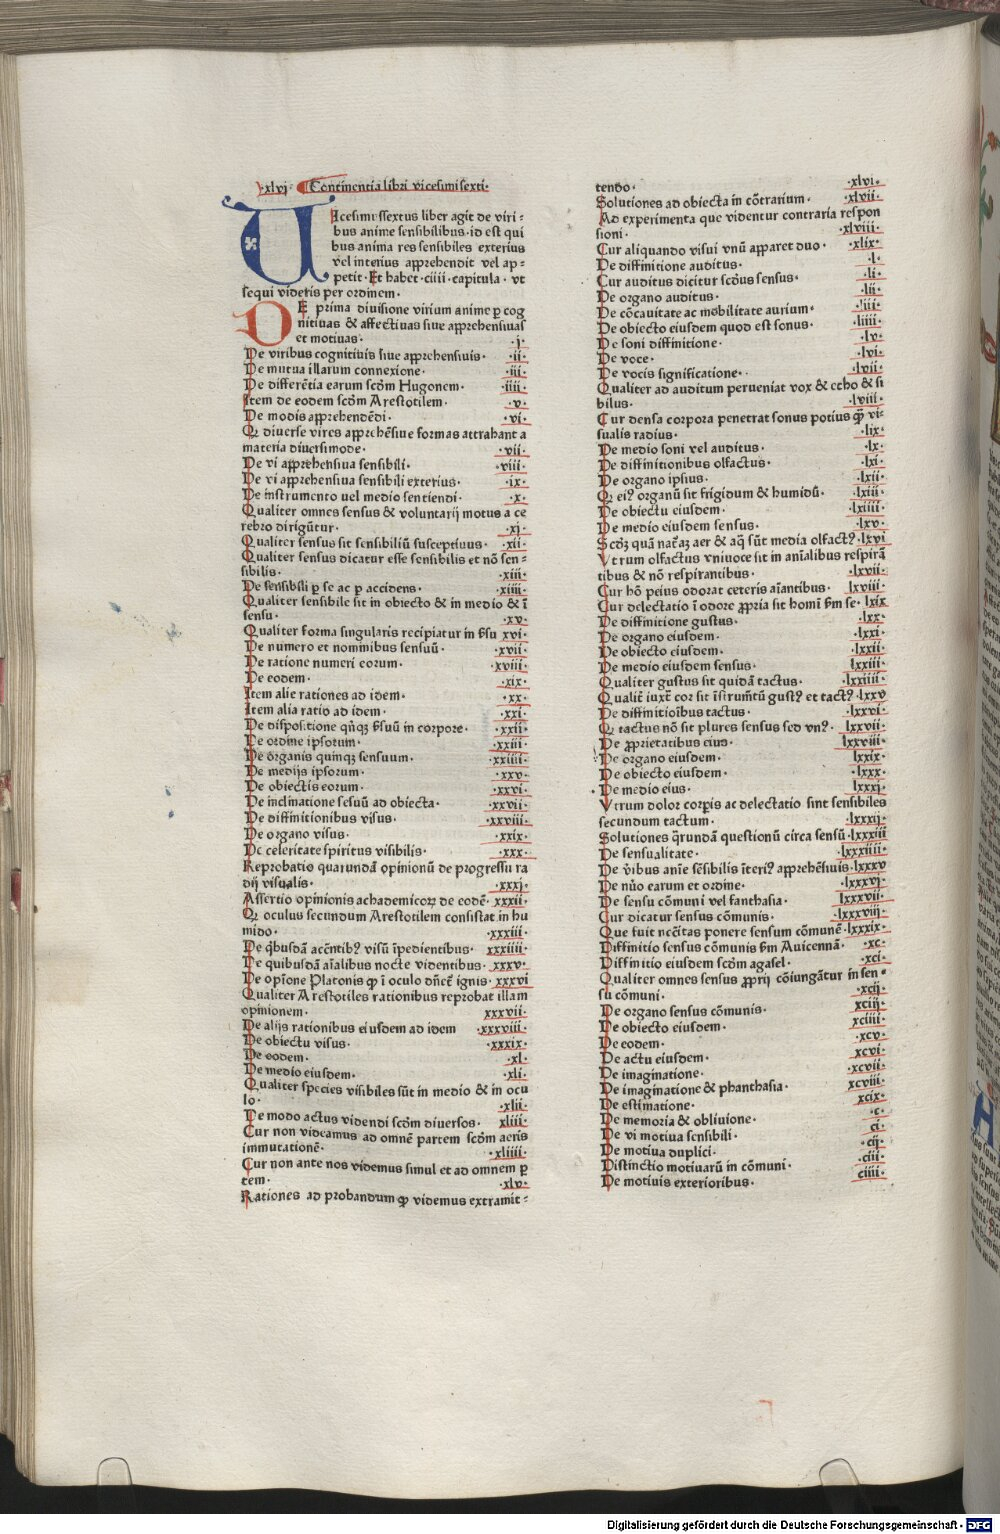 ·xlvj· Continentia libri vicesimisexti·
Uicesimussextus liber agit de viri⸗
bus anime sensibilibus·id est qui
bus anima res sensibiles exterius
vel interius apprehendit vel ap⸗
petit·Et habet·ciiii·capitula· vt
sequi videtis per ordinem·
DE prima diuisione virium anime ꝑ cog
nitiuas & affectiuas siue apprehensiuas
et motiuas· ·j·
De viribus cognitiuis siue apprehensiuis· ·ii·
De mutua illarum connexione· ·iii·
De differētia earum scd̄m Hugonem· ·iiii·
Item de eodem scd̄m Arestotilem· ·v·
De modis apprehendēdi· ·vi·
Ꝙ diuerse vires apprehēsiue formas attrahant a
materia diuersimode· ·vii·
De vi apprehensiua sensibili· ·viii·
De vi apprehensiua sensibili exterius· ·ix·
De instrumento uel medio sentiendi· ·x·
Qualiter omnes sensus & voluntarij motus a ce
rebro dirigūtur· ·xj·
Qualiter sensus sit sensibiliū susceptiuus· ·xii·
Qualiter sensus dicatur esse sensibilis et nō sen⸗
sibilis· ·xiii·
De sensibili ꝑ se ac ꝑ accidens· ·xiiii·
Qualiter sensibile sit in obiecto & in medio & ī
sensu· ·xv·
Qualiter forma singularis recipiatur in sēsu xvi·
De numero et nominibus sensuū· ·xvii·
De ratione numeri eorum· ·xviii·
De eodem· ·xix·
Item alie rationes ad idem· ·xx·
Item alia ratio ad idem· ·xxi·
De dispositione qn̄qꝫ sēsuū in corpore· ·xxii·
De ordine ipsorum· ·xxiii·
De organis quinqꝫ sensuum· ·xxiiii·
De medijs ipsorum· ·xxv·
De obiectis eorum· ·xxvi·
De inclinatione sēsuū ad obiecta· ·xxvii·
De diffinitionibus visus· ·xxviii·
De organo visus· ·xxix·
De celeritate spiritus visibilis· ·xxx·
Reprobatio quarundā opinionū de progressu ra
dij visualis· ·xxxj·
Assertio opinionis achademicoꝝ de eodē· xxxii·
Ꝙ oculus secundum Arestotilem consistat in hu
mido· ·xxxiii·
De qbusdā accn̄tibꝰ visū īpedientibus· xxxiiii·
De quibusdā aīalibus nocte videntibus· xxxv·
De opīone Platonis ꝙ ī oculo dn̄cē ignis·xxxvi
Qualiter Arestotiles rationibus reprobat illam
opinionem· xxxvii·
De alijs rationibus eiusdem ad idem ·xxxviii·
De obiectu visus· ·xxxix·
De eodem· ·xl·
De medio eiusdem· ·xli·
Qualiter species visibiles sūt in medio & in ocu
lo· ·xlii·
De modo actus videndi scd̄m diuersos· xliii·
Cur non videamus ad omnē partem scd̄m aeris
immutationē· ·xliiii·
Cur non ante nos videmus simul et ad omnem ꝑ
tem· ·xlv·
Rationes ad probandum ꝙ videmus extramit⸗
tendo· ·xlvi·
Solutiones ad obiecta in cōtrarium· ·xlvii·
Ad experimenta que videntur contraria respon
sioni· ·xlviii·
Cur aliquando visui vnū apparet duo· ·xlix·
De diffinitione auditus· ·l·
Cur auditus dicitur scd̄us sensus· ·li·
De organo auditus· ·lii·
De cōcauitate ac mobilitate aurium· ·liii·
De obiecto eiusdem quod est sonus· ·liiii·
De soni diffinitione· ·lv·
De voce· ·lvi·
De vocis significatione· ·lvii·
Qualiter ad auditum perueniat vox & echo & si
bilus· ·lviii·
Cur densa corpora penetrat sonus potius ꝙ̄ vi⸗
sualis radius· ·lix·
De medio soni vel auditus· ·lx·
De diffinitionibus olfactus· ·lxi·
De organo ipsius· ·lxii·
Ꝙ eiꝰ organū sit frigidum & humidū· ·lxiii·
De obiectu eiusdem· ·lxiiii·
De medio eiusdem sensus· ·lxv·
Scd̄ꝫ quā naēaꝫ aer & aq̄ sūt media olfactꝰ·lxvi
Vtrum olfactus vniuoce sit in aīalibus respirā
tibus & nō respirantibus· ·lxvii·
Cur hō peius odorat ceteris aīantibus· lxviii·
Cur delectatio ī odore ꝓpria sit homī sm̄ se· lxix
De diffinitione gustus· ·lxx·
De organo eiusdem· ·lxxi·
De obiecto eiusdem· ·lxxii·
De medio eiusdem sensus· ·lxxiii·
Qualiter gustus sit quidā tactus· ·lxxiiii·
Qualit̄ iuxt̄ cor sit īstrumtū gustꝰ et tactꝰ·lxxv
De diffinitioībus tactus· ·lxxvi·
Ꝙ tactus nō sit plures sensus sed vnꝰ· ·lxxvii·
De ꝓprietatibus eius· lxxviii·
De organo eiusdem· ·lxxix·
De obiecto eiusdem· ·lxxx·
De medio eius· lxxxj·
Vtrum dolor corpis ac delectatio sint sensibiles
secundum tactum· ·lxxxij·
Solutiones q̄rundā questionū circa sensū·lxxxiii
De sensualitate· ·lxxxiiii·
De v̄ibus anīe sēsibilis īteriꝰ apprehēsiuis·lxxxv
De nūo earum et ordine· ·lxxxvj·
De sensu cōmuni vel fanthasia· ·lxxxvii·
Cur dicatur sensus cōmunis· ·lxxxviij·
Que fuit nccītas ponere sensum cōmunē·lxxxix·
Diffinitio sensus cōmunis sm̄ Auicennā· ·xc·
Diffinitio eiusdem scd̄m agasel· ·xci·
Qualiter omnes sensus ꝓprij cōiungātur in sen⸗
su cōmuni· ·xcij·
De organo sensus cōmunis· xciij·
De obiecto eiusdem· xciiii·
De eodem· ·xcv·
De actu eiusdem· xcvi·
De imaginatione· ·xcvii·
De imaginatione & phanthasia· xcviii·
De estimatione· xcix·
De memoria & obliuione· ·c·
De vi motiua sensibili· ci·
De motiua duplici· ·cij·
Distinctio motiuarū in cōmuni· ·ciii·
De motiuis exterioribus· ciiii·
Digitalisierung gefördert durch die Deutsche Forschungsgemeinschaft - DFG